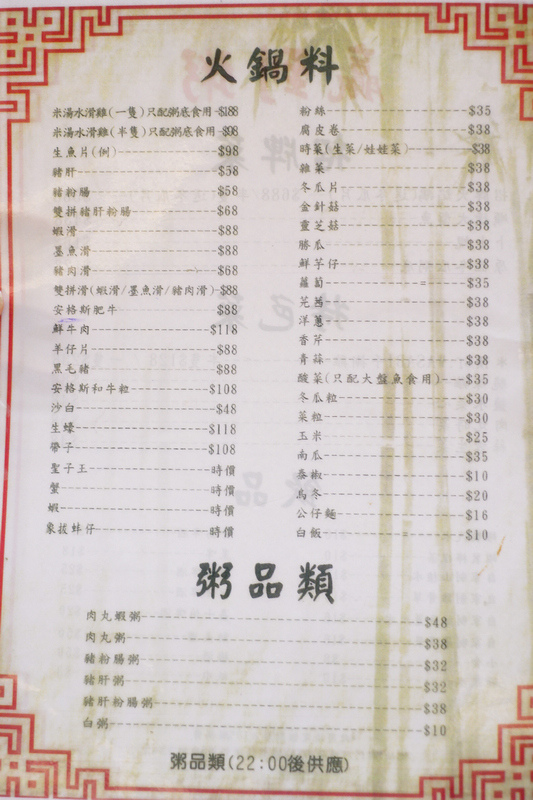 火鍋料
米湯水滑雞(一隻)只配粥底食用 $188
米湯水滑雞(半隻)只配粥底食用 $98
生魚片(例) $98
豬肝 $58
豬粉腸 $58
雙拼豬肝粉腸 $68
蝦滑 $88
墨魚滑 $88
豬肉滑 $68
雙拼滑(蝦滑/墨魚滑/豬肉滑) $88
安格斯肥牛 $88
鮮牛肉 $118
羊仔片 $88
黑毛豬 $88
安格斯和牛粒 $108
沙白 $48
生蠔 $118
帶子 $108
聖子王 時價
蟹 時價
蝦 時價
象拔蚌仔 時價
粉絲 $35
腐皮卷 $38
時菜(生菜/娃娃菜) $38
雜菜 $38
冬瓜片 $38
金針菇 $38
靈芝菇 $38
勝瓜 $38
鮮芋仔 $38
蘿蔔 $35
芫茜 $38
洋蔥 $38
香芹 $38
青蒜 $38
酸菜(只配大盤魚食用) $35
冬瓜粒 $30
菜粒 $30
玉米 $25
南瓜 $35
泰椒 $10
烏冬 $20
公仔麵 $16
白飯 $10
粥品類
肉丸蝦粥 $48
肉丸粥 $38
豬粉腸粥 $32
豬肝粥 $32
豬肝粉腸粥 $38
白粥 $10
粥品類(22:00後供應)